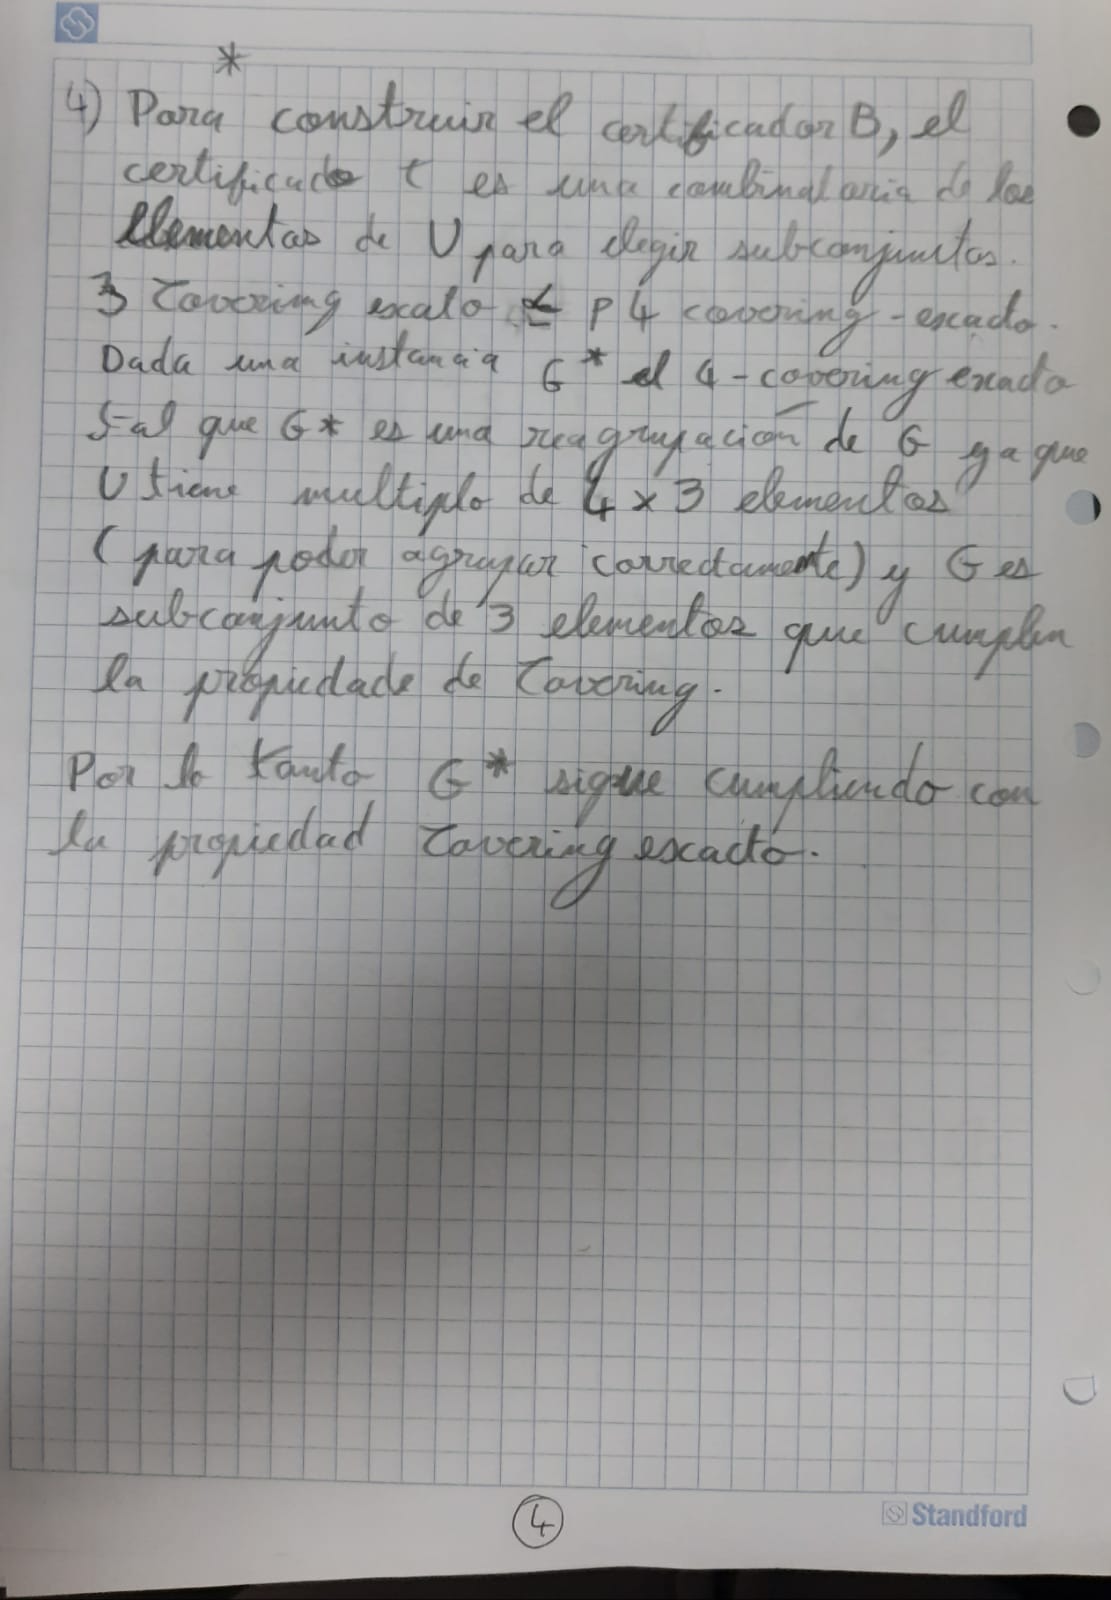 *
4) Para construir el certificador B, el
certificado t es una combinatoria de los
Elementos de U para elegir subconjuntos.
3 Covering exato ≤ P 4 covering-exacto.
Dada una instancia G* el 4-covering exacto
tal que G* es una reagrupación de G ya que
U tiene multiplo de 4 x 3 elementos
(para poder agrupar correctamente) y G es
subconjunto de 3 elementos que cumplen
la propiedade de Covering.
Por lo tanto G* sigue cumpliendo con
la propiedad Covering exacto.
4
Standford